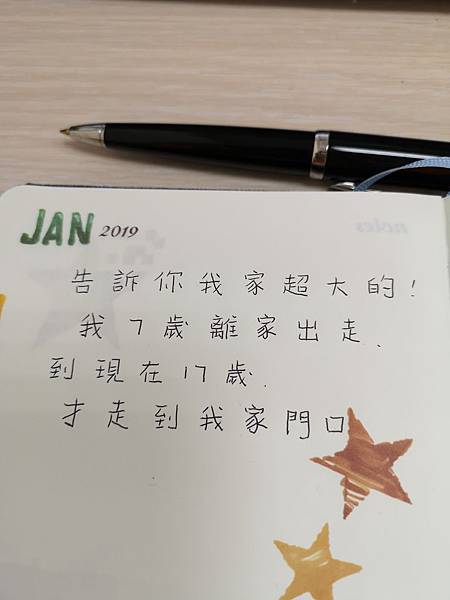 JAN 2019
notes
告訴你我家超大的!
我7歲離家出走.
到現在17歲.
才走到我家門口